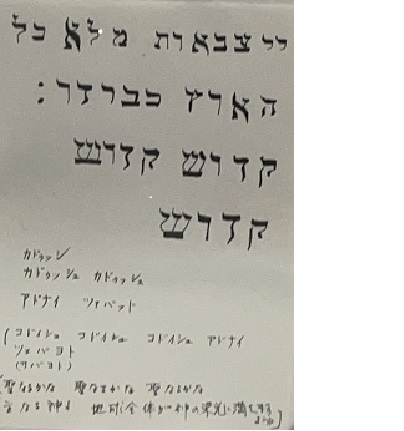 יי צבאות מלא כל
הארץ כבודו :
קדוש קדוש
קדוש
カドゥッシュ カドゥッシュ
アドナイ ツェバット
(コドイシュ コドイシュ コドイシュ アドナイ
ツェバヨト
聖なるかな 聖なるかな 聖なるかな
全体が神の栄光に